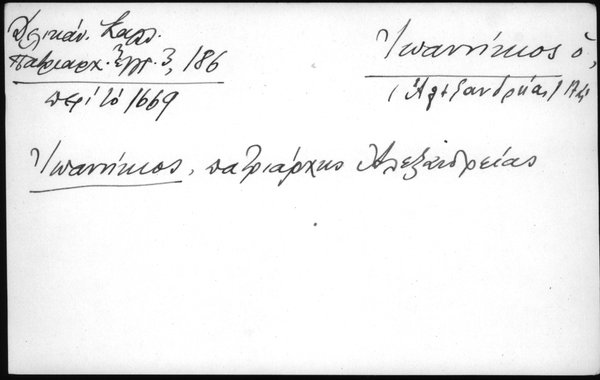 Δελικάν. Καλλ.
Πατριαρχ. Ἔγγ. 3, 186
περί τό 1669
Ἰωαννίκιος ὁ,
(Ἀλεξανδρείας)
Ἰωαννίκιος, πατριάρχης Ἀλεξανδρείας